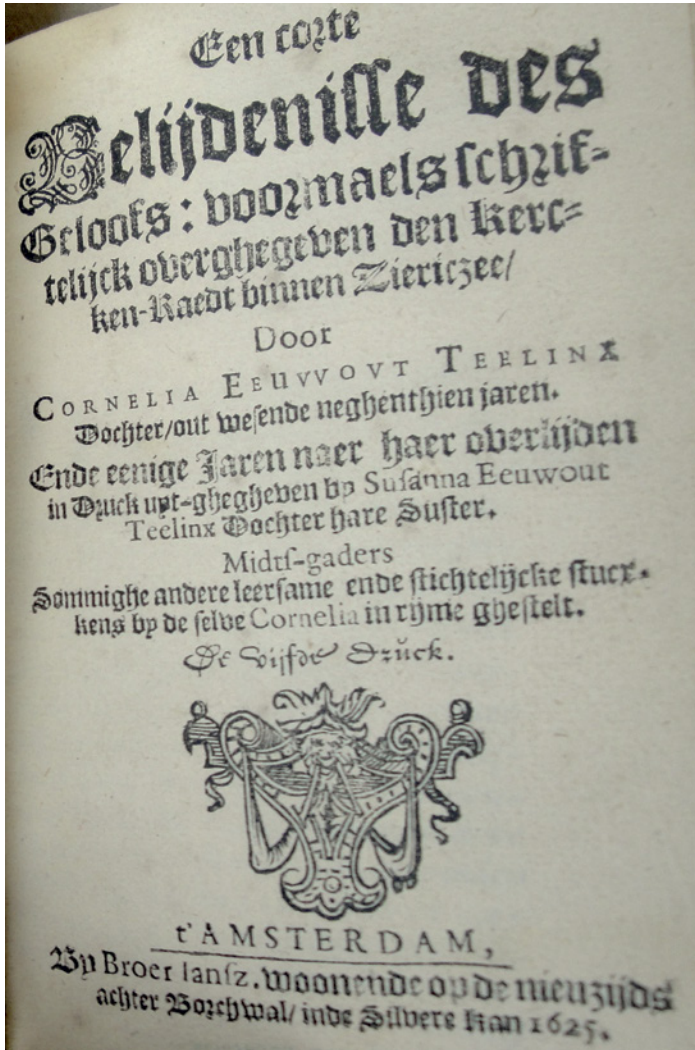 Een corte
Belijdenisse des
Geloofs: voormaels schrif-
telijck overghegeven den Kerc-
ken-Raedt binnen Ziericzee/
Door
CORNELIA EEUVVOVT TEELINX
Dochter/out wesende neghenthien jaren.
Ende eenige Jaren naer haer overlijden
in Druck uyt-ghegheven by Susanna Eeuwout
Teelinx Dochter hare Suster.
Midts-gaders
Sommighe andere leersame ende stichtelijcke stucx-
kens by de selve Cornelia in ryme ghestelt.
De Vijfde Druck.
t'AMSTERDAM,
By Broer Iansz. woonende op de nieuzijds
achter Borchwal/ inde Silvere Kan 1625.